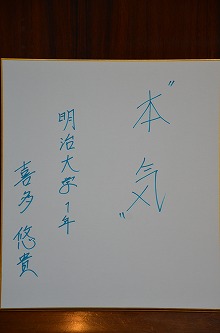 "本気"
明治大学1年
喜多悠貴